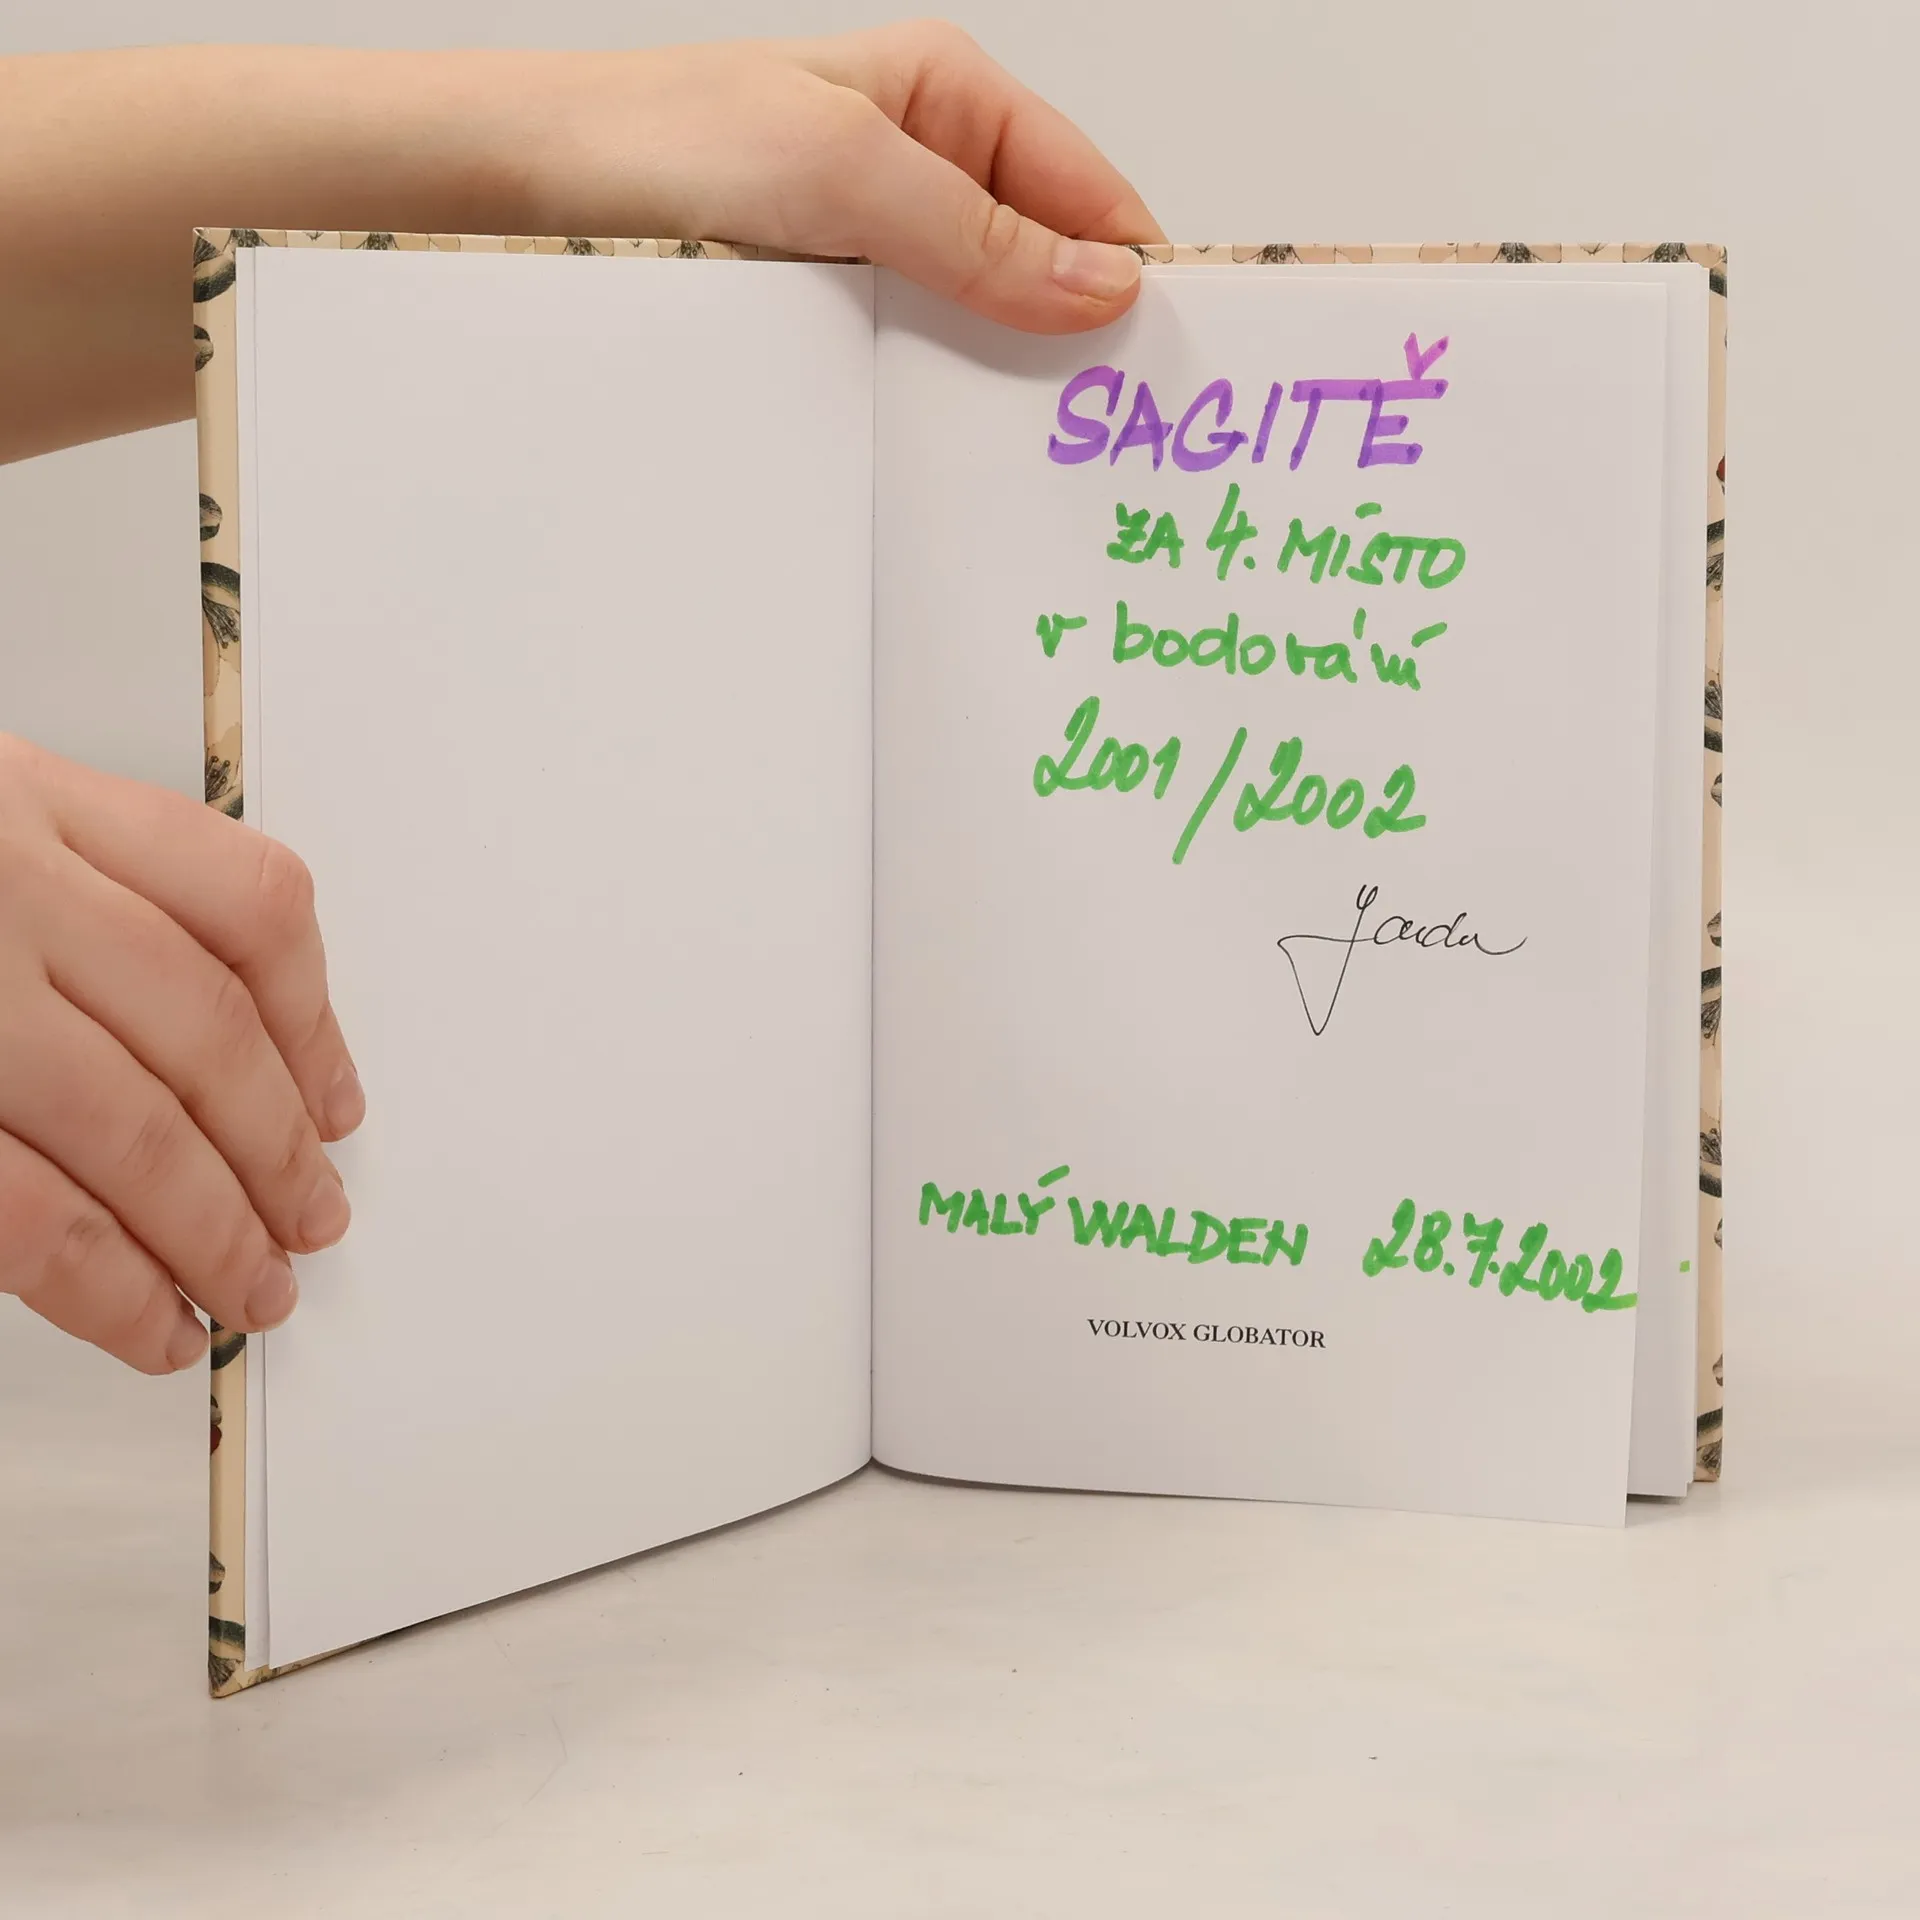 SAGITĚ
ZA 4. MÍSTO
v bodování
2001/2002
Jarda
MALÝ WALDEN 28.7.2002
VOLVOX GLOBATOR